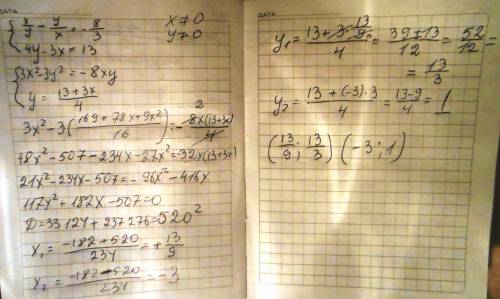 ДАТА
{ x/y - y/x = -8/3    x≠0
4y-3x = 13    y≠0
{ 3x²-3y² = -8xy
y = (13+3x)/4
3x²-3((169+78x+9x²)/16) = -8x(13+3x)/4
2
48x²-507-234x-27x² = -32x(13+3x)
21x²-234x-507 = -96x²-416x
117x²+182x-507=0
D=33124+237276=520²
x₁ = (-182+520)/234 = +13/9
x₂ = (-182-520)/234 = -3
ДАТА
y₁ = (13+3·13/9)/4 = (39+13)/12 = 52/12 =
= 13/3
y₂ = (13+(-3)·3)/4 = (13-9)/4 = 1
(13/9; 13/3) (-3; 1)